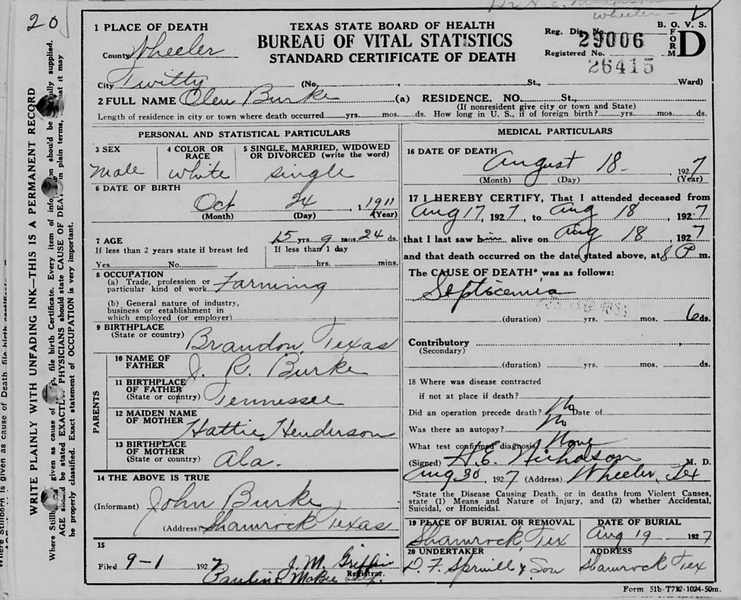 20
Wheeler
TEXAS STATE BOARD OF HEALTH
BUREAU OF VITAL STATISTICS
STANDARD CERTIFICATE OF DEATH
B. O. V. S.
FORM D
Reg. Dis. No. 29006
Registered No. 26415
1 PLACE OF DEATH
County Wheeler
City Twitty (No. St., Ward)
2 FULL NAME Olen Burke (a) RESIDENCE. NO. St.,
(If nonresident give city or town and State)
Length of residence in city or town where death occurred yrs. mos. ds. How long in U. S., if of foreign birth? yrs. mos. ds.
PERSONAL AND STATISTICAL PARTICULARS
3 SEX Male
4 COLOR OR RACE White
5 SINGLE, MARRIED, WIDOWED OR DIVORCED (write the word) Single
6 DATE OF BIRTH
Oct 24, 1911
(Month) (Day) (Year)
7 AGE 15 yrs. 9 mos. 24 ds.
If less than 2 years state if breast fed If less than 1 day
Yes. No. hrs. mins.
8 OCCUPATION
(a) Trade, profession or particular kind of work Farming
(b) General nature of industry, business or establishment in which employed (or employer)
9 BIRTHPLACE
(State or country) Brandon, Texas
PARENTS
10 NAME OF FATHER J. R. Burke
11 BIRTHPLACE OF FATHER
(State or country) Tennessee
12 MAIDEN NAME OF MOTHER Hattie Henderson
13 BIRTHPLACE OF MOTHER
(State or country) Ala.
14 THE ABOVE IS TRUE
(Informant) John Burke
(Address) Shamrock Texas
15
Filed 9-1 1927 J. M. Griffin
Registrar.
Pauline McBee
MEDICAL PARTICULARS
16 DATE OF DEATH
August 18 1927
(Month) (Day) (Year)
17 I HEREBY CERTIFY, That I attended deceased from
Aug 17, 1927, to Aug 18 1927
that I last saw him alive on Aug 18 1927
and that death occurred on the date stated above, at 8 P m.
The CAUSE OF DEATH* was as follows:
Septicemia
(duration) yrs. mos. 6 ds.
Contributory
(Secondary)
(duration) yrs. mos. ds.
18 Where was disease contracted
if not at place if death?
Did an operation precede death? No Date of
Was there an autopsy? No
What test confirmed diagnosis? None
(Signed) H. E. Nicholson M. D.
Aug 30, 1927 (Address) Wheeler, Tex
*State the Disease Causing Death, or in deaths from Violent Causes,
state (1) Means and Nature of Injury, and (2) whether Accidental,
Suicidal, or Homicidal.
19 PLACE OF BURIAL OR REMOVAL
Shamrock, Tex
DATE OF BURIAL
Aug 19 1927
20 UNDERTAKER
D. F. Spruill & Son
ADDRESS
Shamrock Tex
Form 51b
WRITE PLAINLY WITH UNFADING INK—THIS IS A PERMANENT RECORD